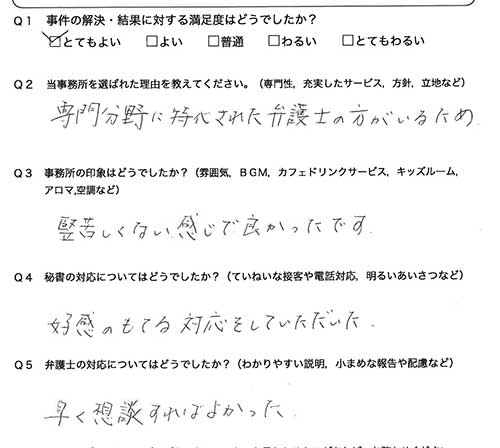 Q1 事件の解決・結果に対する満足度はどうでしたか？
☑とてもよい □よい □普通 □わるい □とてもわるい
Q2 当事務所を選ばれた理由を教えてください。（専門性，充実したサービス，方針，立地など）
専門分野に特化された弁護士の方がいるため．
Q3 事務所の印象はどうでしたか？（雰囲気，BGM，カフェドリンクサービス，キッズルーム，
アロマ,空調など）
堅苦しくない感じで良かったです．
Q4 秘書の対応についてはどうでしたか？（ていねいな接客や電話対応，明るいあいさつなど）
好感のもてる対応をしていただいた．
Q5 弁護士の対応についてはどうでしたか？（わかりやすい説明，小まめな報告や配慮など）
早く想談すればよかった．